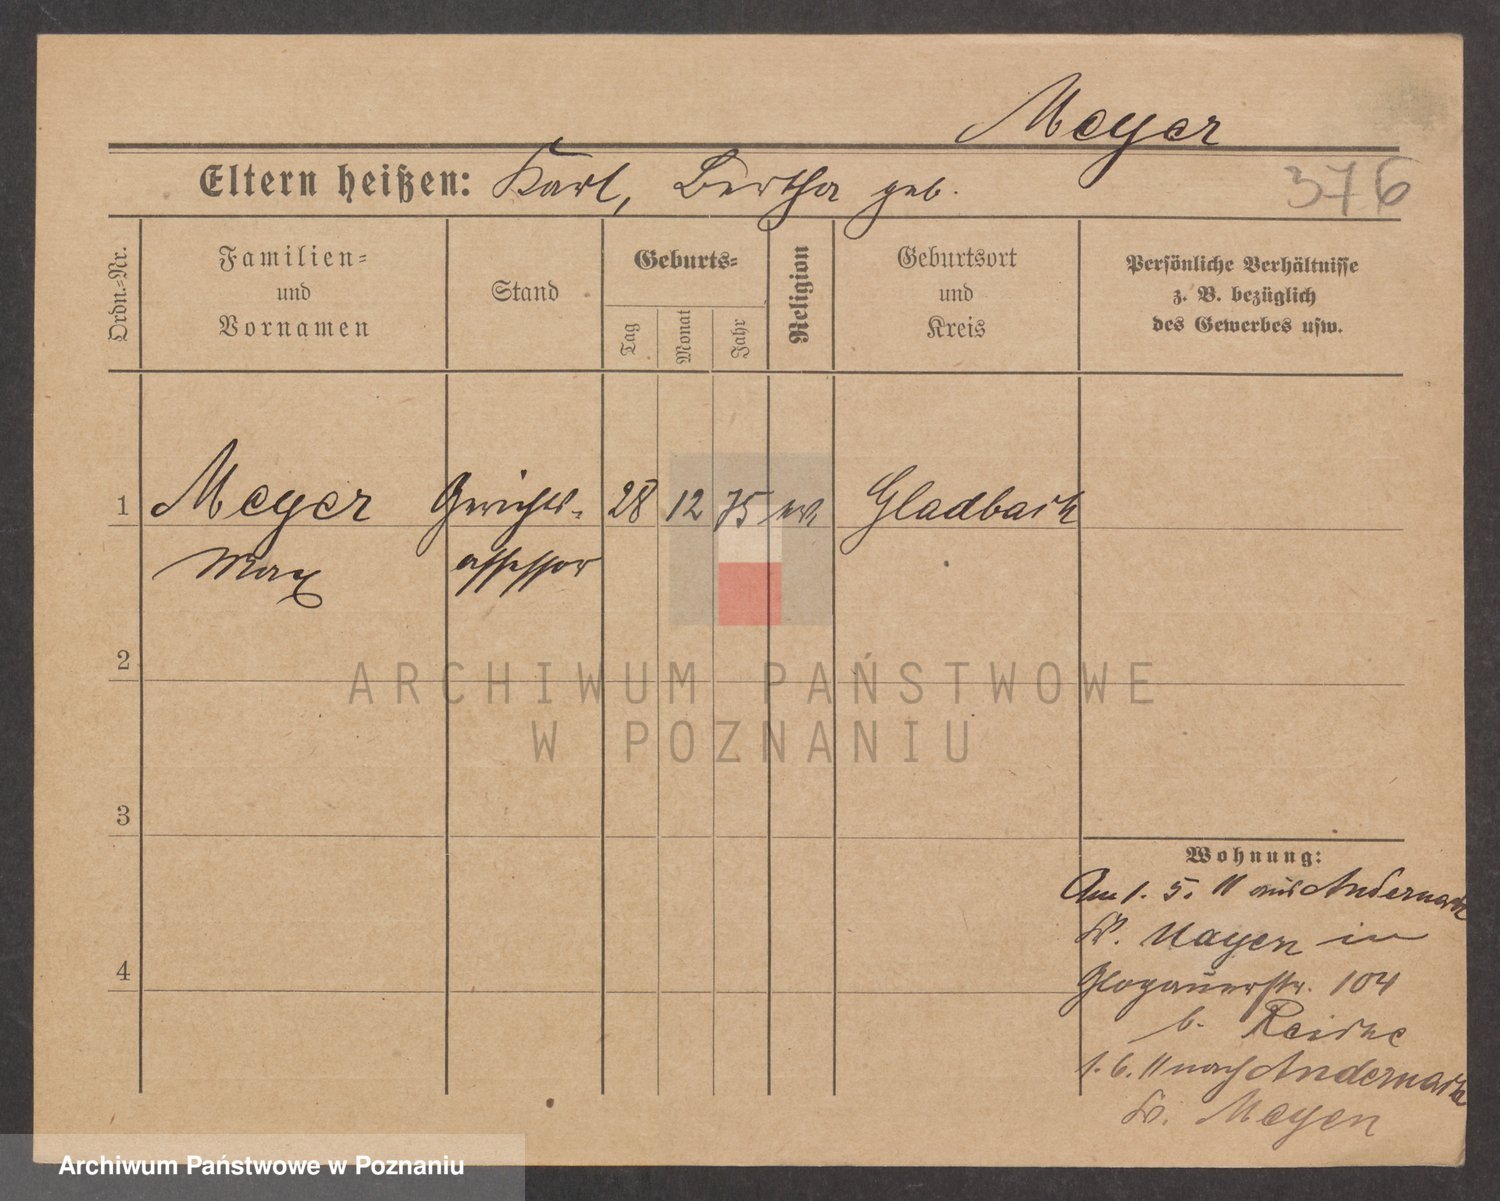 Meyer
Eltern heißen: Karl, Bertha geb.
376
Ordn.=Nr.
Familien=
und
Vornamen
Stand
Geburts=
Tag
Monat
Jahr
Religion
Geburtsort
und
Kreis
Persönliche Verhältnisse
z. B. bezüglich
des Gewerbes usw.
1
Meyer
Max
Gerichts-
assessor
28
12
75
ev.
Gladbach
2
3
4
Wohnung:
Am 1. 5. 11 aus Andernach
Kr. Mayen in
Glogauerstr. 104
b.
1. 6. 11 nach Andernach
Kr. Mayen
ARCHIWUM PAŃSTWOWE
W POZNANIU
Archiwum Państwowe w Poznaniu